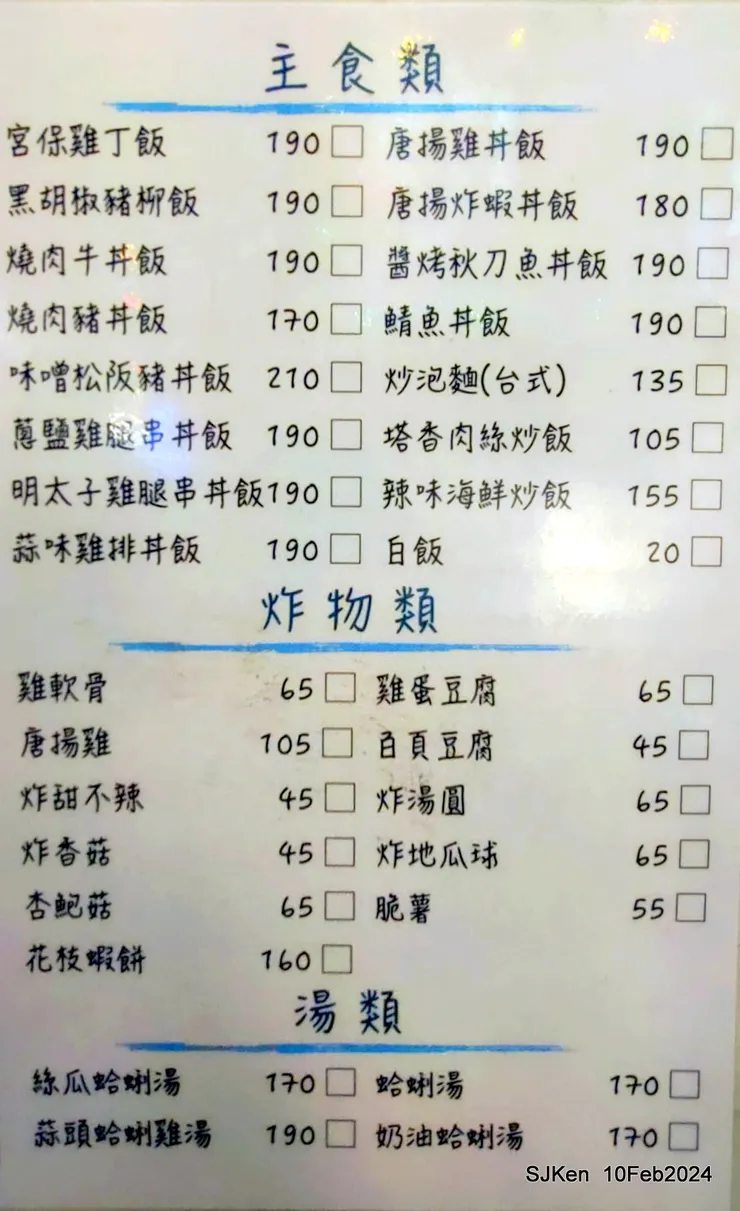 主食類
宮保雞丁飯 190 □ 唐揚雞丼飯 190 □
黑胡椒豬柳飯 190 □ 唐揚炸蝦丼飯 180 □
燒肉牛丼飯 190 □ 醬烤秋刀魚丼飯 190 □
燒肉豬丼飯 170 □ 鯖魚丼飯 190 □
味噌松阪豬丼飯 210 □ 炒泡麵(台式) 135 □
蔥鹽雞腿串丼飯 190 □ 塔香肉絲炒飯 105 □
明太子雞腿串丼飯 190 □ 辣味海鮮炒飯 155 □
蒜味雞排丼飯 190 □ 白飯 20 □
炸物類
雞軟骨 65 □ 雞蛋豆腐 65 □
唐揚雞 105 □ 百頁豆腐 45 □
炸甜不辣 45 □ 炸湯圓 65 □
炸香菇 45 □ 炸地瓜球 65 □
杏鮑菇 65 □ 脆薯 55 □
花枝蝦餅 160 □
湯類
絲瓜蛤蜊湯 170 □ 蛤蜊湯 170 □
蒜頭蛤蜊雞湯 190 □ 奶油蛤蜊湯 170 □
SJKen 10Feb2024